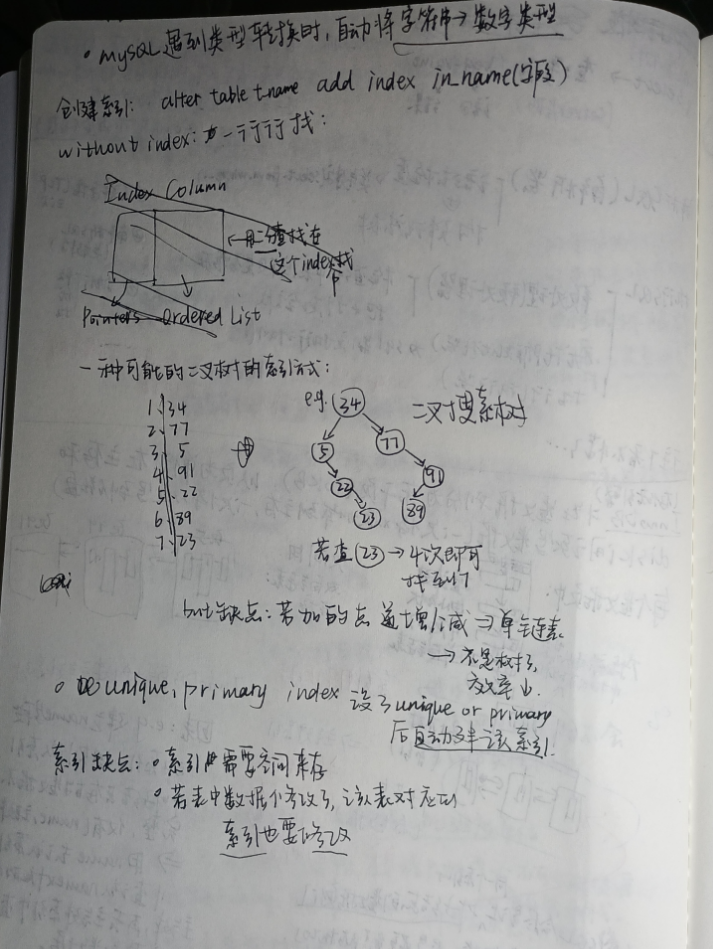 • mySQL遇到类型转换时，自动将字符串→数字类型
创建索引： alter table t_name add index in_name(字段)
without index: 一行行找：
Index Column
←用二分查找在
这个index找
Pointers Ordered List
一种可能的二叉树的索引方式：
e.g. 34 二叉搜索树
1 34
2 77
3 5
4 91
5 22
6 89
7 23
5 77
22 91
23 89
若查 23 → 4次即可
找到了
but缺点：若加的点递增/减 → 单链表
→ 不是树了,
效率低.
• unique, primary index 设了unique or primary
后自动建该索引.
索引缺点： • 索引需要空间来存
• 若表中数据修改了，该表对应的
索引也要修改